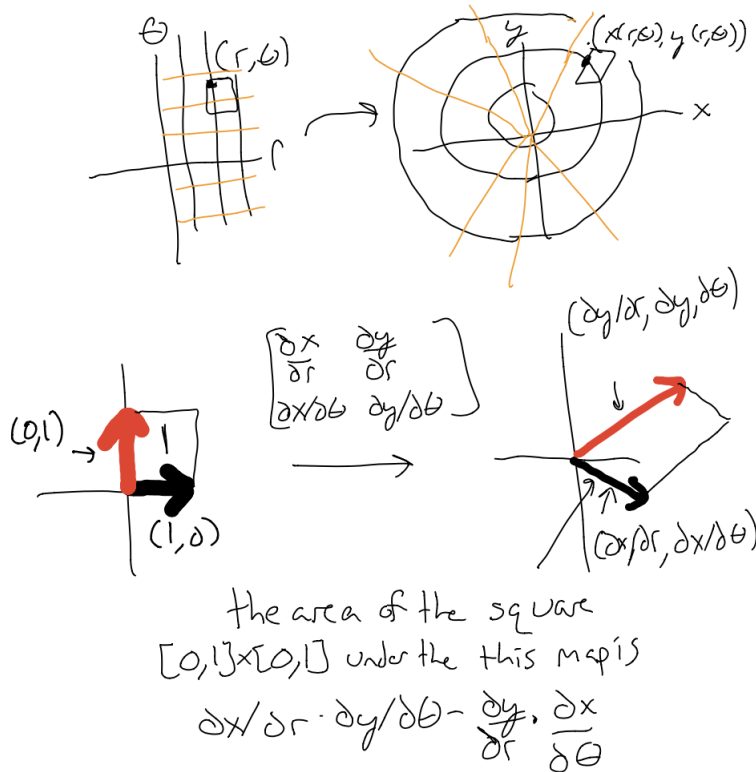 θ
(r,θ)
r
y
(x(r,θ), y(r,θ))
x
∂x/∂r ∂y/∂r
∂x/∂θ ∂y/∂θ
(∂y/∂r, ∂y,∂θ)
(0,1)
1
(1,0)
(∂x/∂r, ∂x/∂θ)
the area of the square
[0,1]x[0,1] under the this map is
∂x/∂r · ∂y/∂θ - ∂y/∂r · ∂x/∂θ